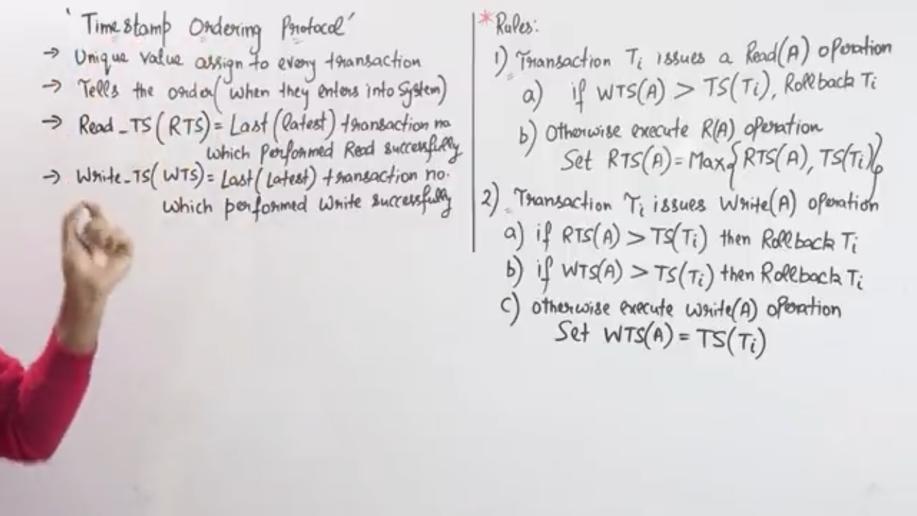 'Timestamp Ordering Protocol'
→ Unique value assign to every transaction
→ Tells the order (when they enters into System)
→ Read_TS (RTS) = Last (latest) transaction no
which performed Read successfully
→ Write_TS (WTS) = Last (Latest) transaction no.
which performed Write successfully
*Rules:
1) Transaction Ti issues a Read(A) operation
a) if WTS(A) > TS(Ti), Rollback Ti
b) Otherwise execute R(A) operation
Set RTS(A) = Max{RTS(A), TS(Ti)}
2) Transaction Ti issues Write(A) operation
a) if RTS(A) > TS(Ti) then Rollback Ti
b) if WTS(A) > TS(Ti) then Rollback Ti
c) otherwise execute Write(A) operation
Set WTS(A) = TS(Ti)